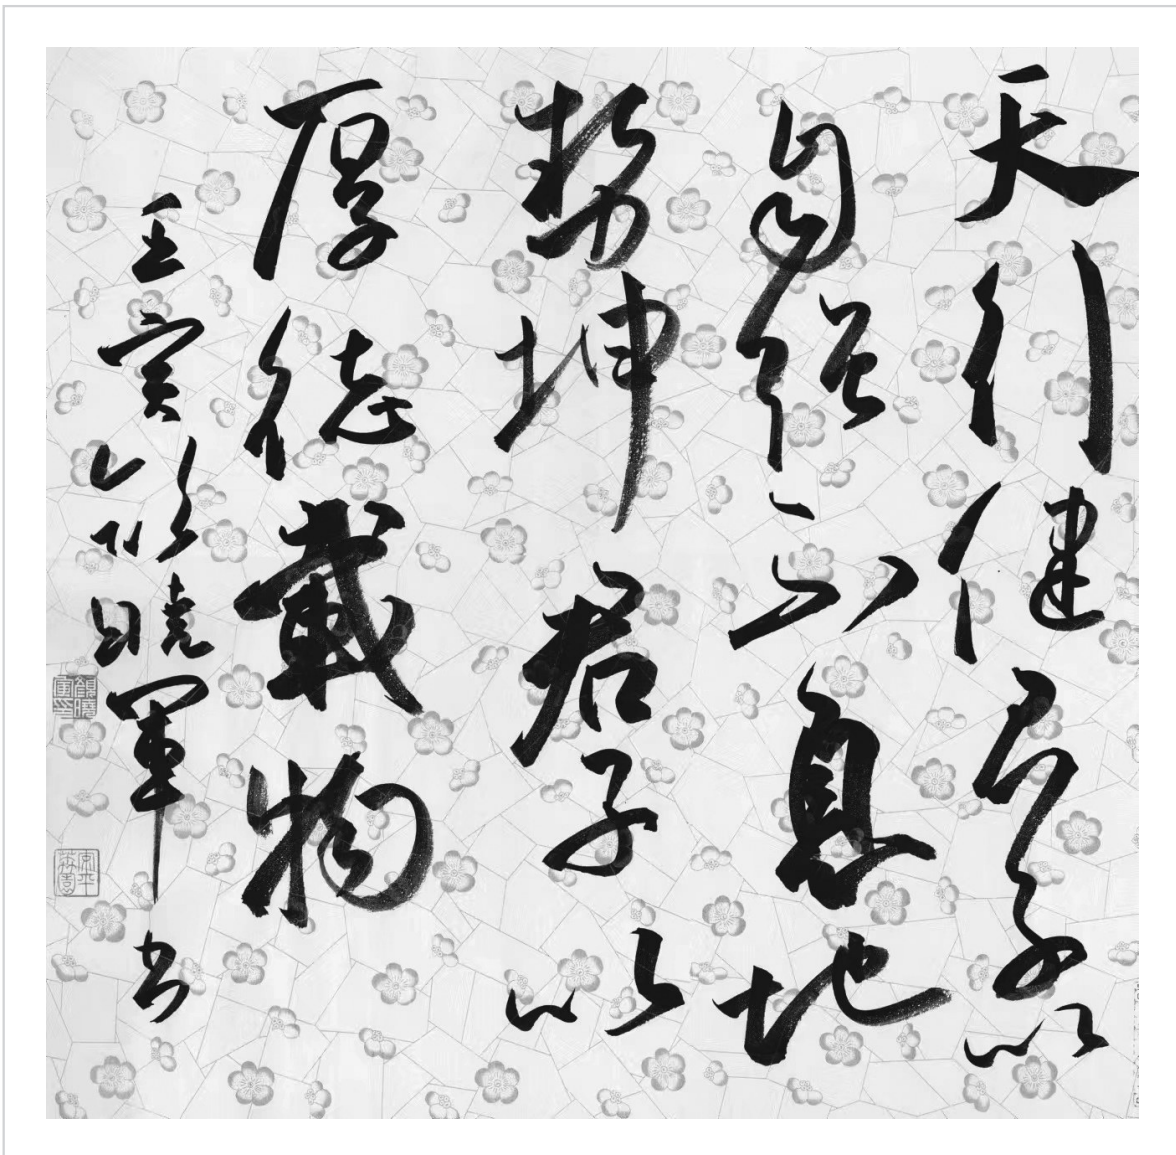 天行健君子以
自强不息地
势坤君子以
厚德載物
壬寅顾晓軍书
顧曉軍印